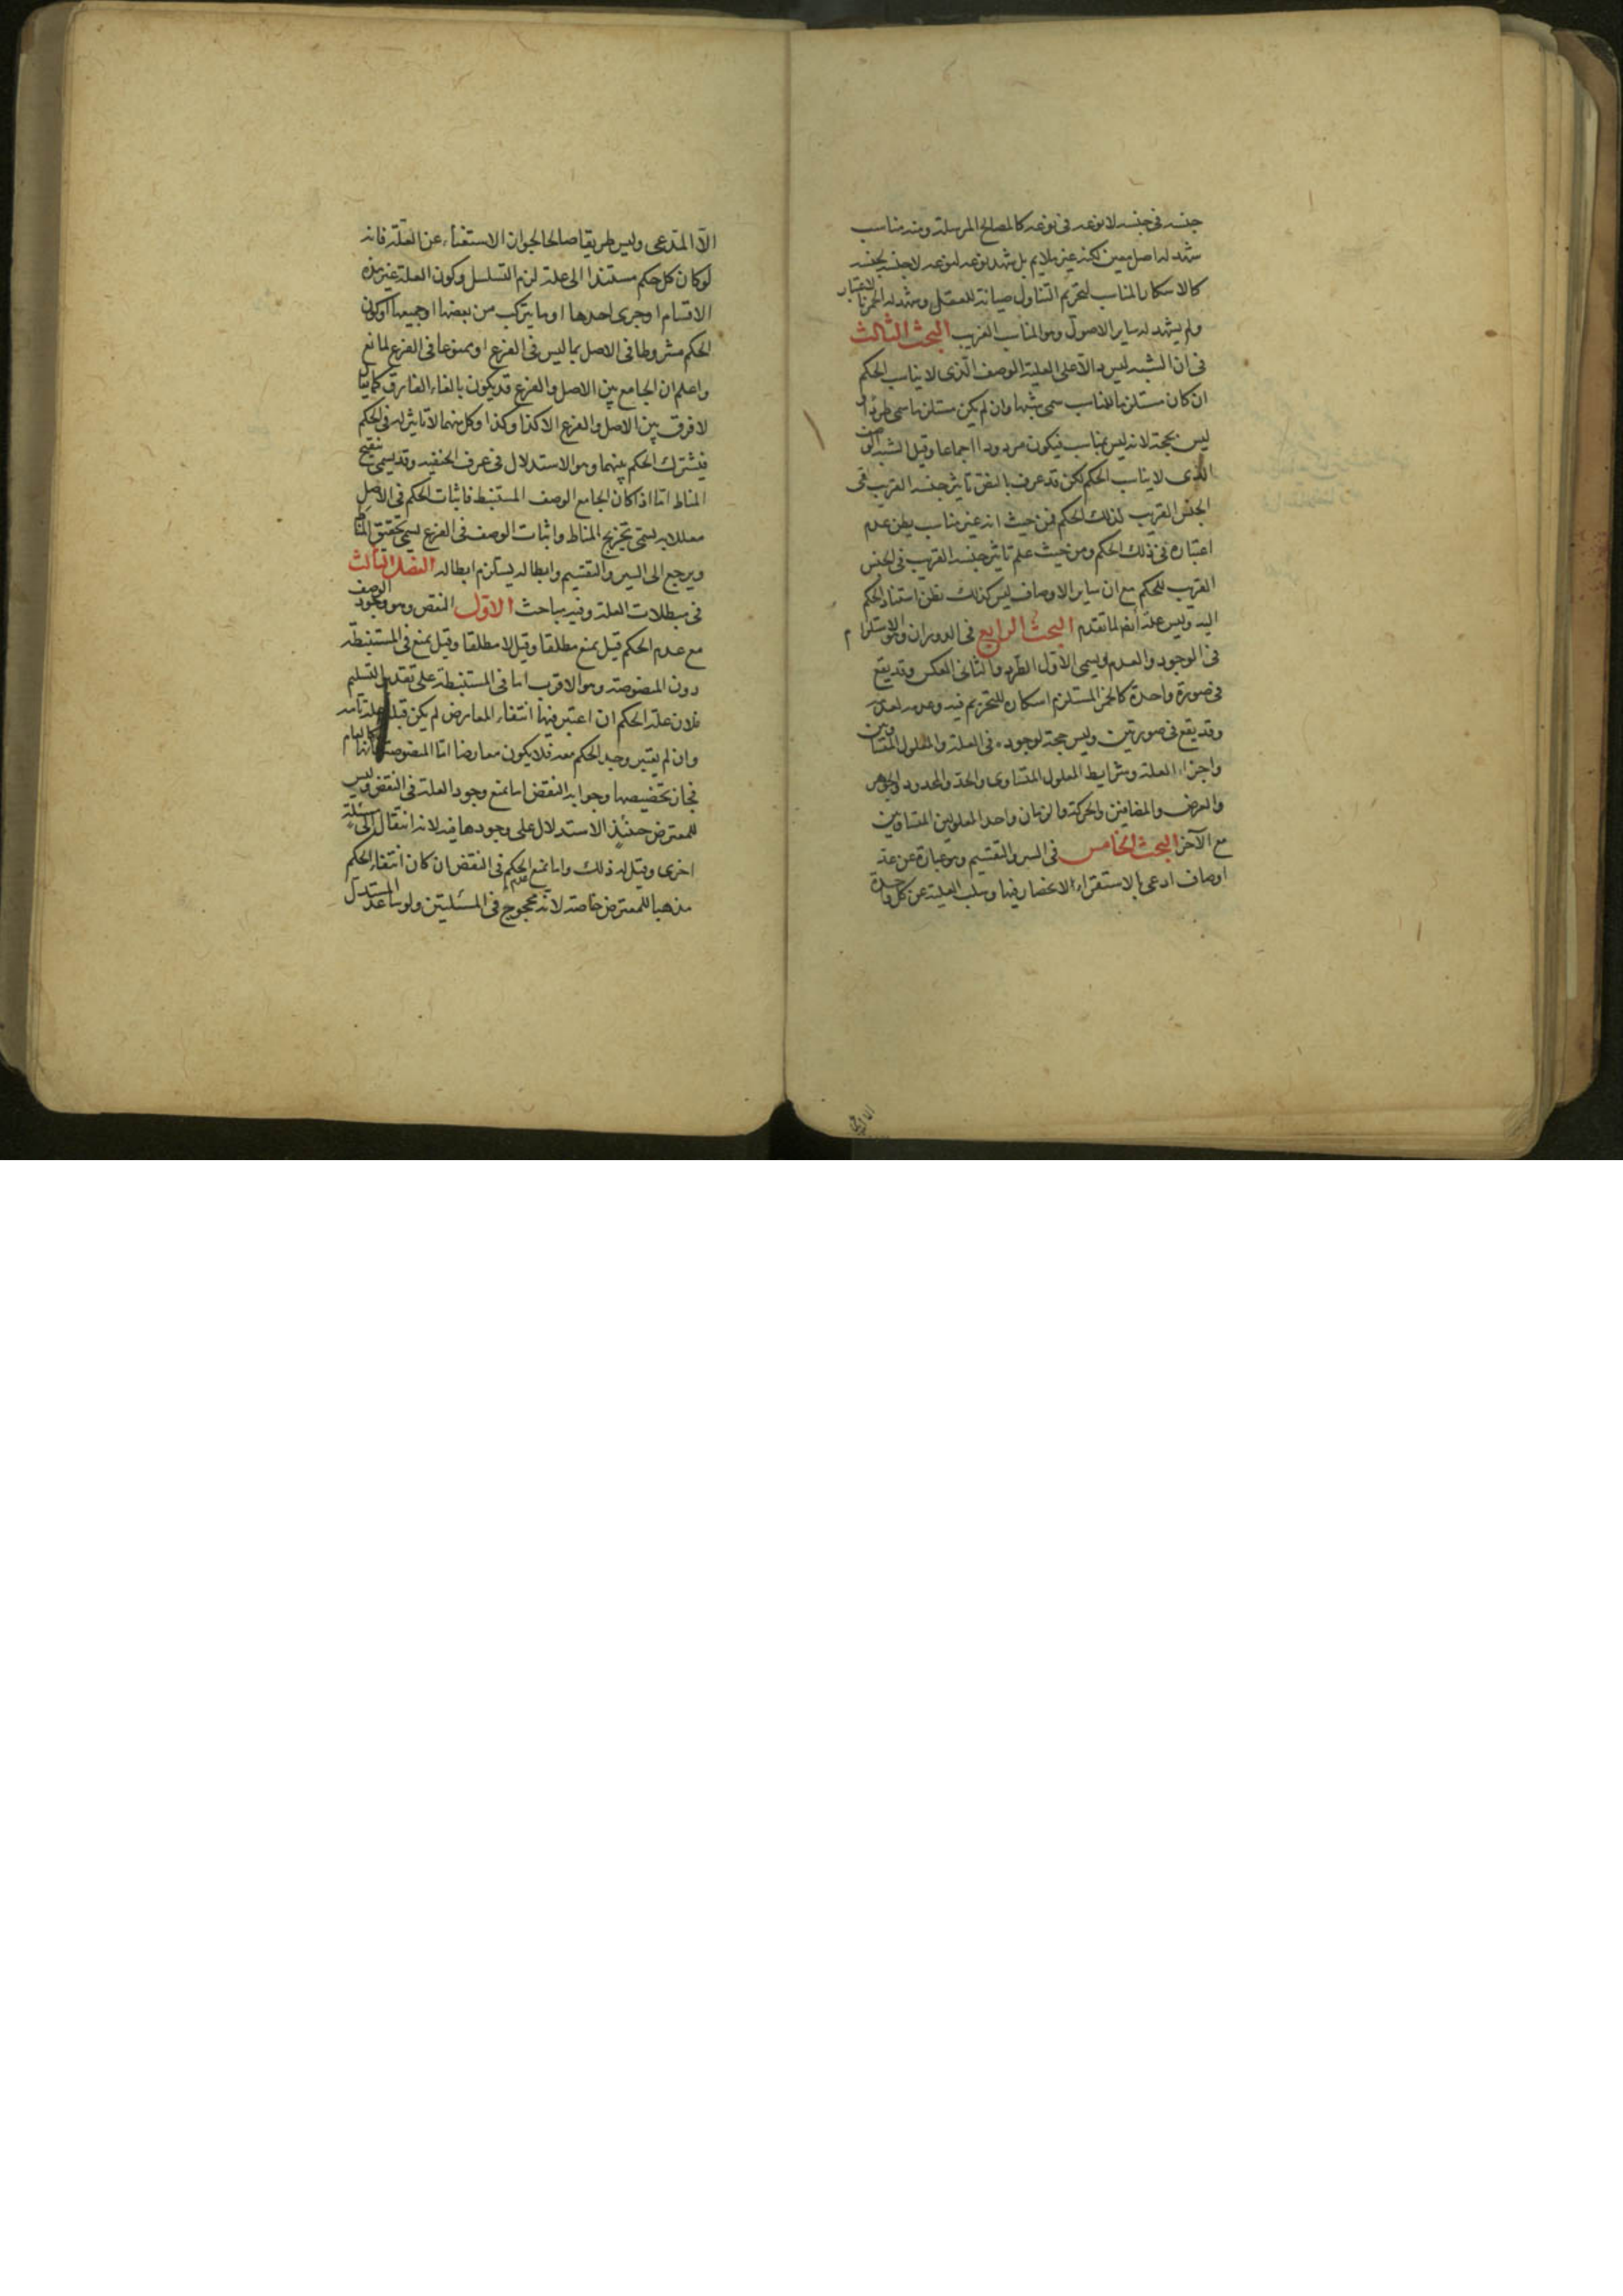 جنسه فى جنسه لا نوعه فى نوعه كالمصالح المرسلة ومنه مناسب
شهد له اصل معين لكنه غير ملايم بل شهد نوعه لنوعه لا جنسه لجنسه
كالاسكار المناسب لتحريم التناول صيانة للعقل وشهد له الخمر بالاعتبار
ولم يشهد له ساير الاصول وهو المناسب الغريب البحث الثالث
فى ان الشبه ليس دالا على العلية الوصف الذى لا يناسب الحكم
ان كان مستلزما للمناسب سمى شبها وان لم يكن مستلزما سمى طردا و
ليس بحجة لانه ليس بمناسب فيكون مردودا اجماعا وقيل الشبه الوصف
الذى لا يناسب الحكم لكن قد عرف بالنص تاثير جنسه القريب فى
الجنس القريب لذلك الحكم فمن حيث انه غير مناسب يظن عدم
اعتباره فى ذلك الحكم ومن حيث علم تاثير جنسه القريب فى الجنس
القريب للحكم مع ان ساير الاوصاف ليس كذلك يظن استناد الحكم
اليه وليس علة ايضا لما تقدم البحث الرابع فى الدوران وهو الاستلزام
فى الوجود والعدم ويسمى الاول الطرد والثانى العكس وقد يقع
فى صورة واحدة كالخمر المستلزم اسكاره للتحريم فيه وعدمه لعدمه
وقد يقع فى صورتين وليس حجة لوجوده فى العلة والمعلول المتساويين
واجزاء العلة وشرايط المعلول المتساوى والحد والمحدود والجوهر
والعرض والمضافين والحركة والزمان واحد المعلولين المتساويين
مع الآخر البحث الخامس فى السبر والتقسيم وهو عبارة عن عد
اوصاف ادعى بالاستقراء الانحصار فيها وسلب العلية عن كل واحدة
الا المدعى وليس طريقا صالحا لجواز الاستغناء عن العلة فانه
لو كان كل حكم مستندا الى علة لزم التسلسل وكون العلة غير هذه
الاقسام او جزى احدها او ما يتركب من بعضها او جميعها او كون
الحكم مشروطا فى الاصل بما ليس فى الفرع او ممنوعا فى الفرع لمانع
واعلم ان الجامع بين الاصل والفرع قد يكون بالغاء الفارق كما يقال
لا فرق بين الاصل والفرع الا كذا وكذا وكل منهما لا تاثير له فى الحكم
فيشترك الحكم بينهما وهو الاستدلال فى عرف الحنفيه وقد يسمى تنقيح
المناط اما اذا كان الجامع الوصف المستنبط فاثبات الحكم فى الاصل
معللا به يسمى تخريج المناط واثبات الوصف فى الفرع يسمى تحقيق المناط
ويرجع الى السبر والتقسيم وابطاله يستلزم ابطاله الفصل الثالث
فى مبطلات العلة وفيه مباحث الاول النقض وهو وجود الوصف
مع عدم الحكم قيل يمنع مطلقا وقيل لا مطلقا وقيل يمنع فى المستنبطة
دون المنصوصة وهو الاقرب اما فى المستنبطة على تقدير التسليم
فلان علة الحكم ان اعتبر فيها انتفاء المعارض لم يكن قبله علة تامة
وان لم يعتبر وجد الحكم معه فلا يكون معارضا اما المنصوصة فانها كالعام
فجاز تخصيصها وجوابه النقض اما بمنع وجود العلة فى النقض وليس
للمعترض حينئذ الاستدلال على وجودها فيه لانه انتقال الى مسئلة
اخرى وقيل له ذلك واما بمنع عدم الحكم فى النقض ان كان انتفاء الحكم
مذهبا للمعترض خاصة لانه محجوج فى المسئلتين ولو ساعد المستدل